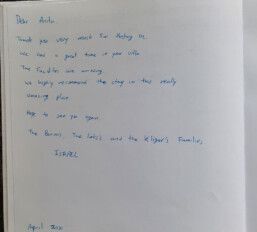 Dear
Thank you very much for hosting us.
We had a great time in your villa
The facilities are amazing.
we highly recommend the stay in this really
amazing place
hope to see you again.
The and the Families,
ISRAEL
April